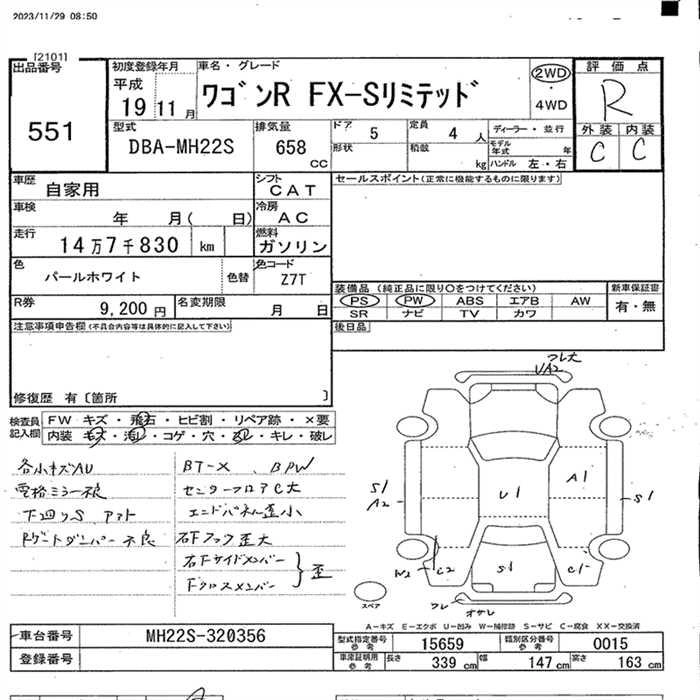 2023/11/29 08:50
[2101]
出品番号
551
初度登録年月
平成
19 11 月
車名・グレード
ワゴンR FX-Sリミテッド
2WD
・
4WD
評価点
R
外装 内装
C C
型式
DBA-MH22S
排気量
658
CC
ドア 5
定員 4 人
形状
積載 kg
ディーラー・並行
モデル年式 年
ハンドル 左・右
車歴 自家用
シフト CAT
車検 年 月( 日)
冷房 AC
走行 14万7千830 km
燃料 ガソリン
色 パールホワイト
色替
色コード Z7T
R券 9,200 円
名変期限 月 日
セールスポイント(正常に機能するものに限ります)
装備品 (純正品に限り○をつけてください)
PS PW ABS エアB AW
SR ナビ TV カワ
新車保証書
有・無
後日品
注意事項申告欄(不具合内容等は具体的に記入して下さい)
修復歴 有〔箇所 〕
検査員記入欄
FW キズ・飛石・ヒビ割・リペア跡・×要
内装 キズ・汚レ・コゲ・穴・凹レ・キレ・破レ
各小キズAU
電格ミラー不良
下廻りS アト
Rゲートダンパー不良
BT-X、BPW
センターフロアC大
エンドパネル歪小
右Fフック歪大
右Fサイドメンバー
Fクロスメンバー
歪
フレ大
UA2
S1
A2
U1
A1
S1
W2
C2
S1
C1
スペア
フレ
オサレ
A-キズ E-エクボ U-凹み W-補修跡 S-サビ C-腐食 XX-交換済
車台番号 MH22S-320356
登録番号
型式指定番号 参考 15659
類別区分番号 参考 0015
車庫証明用 参考
長さ 339 cm
幅 147 cm
高さ 163 cm